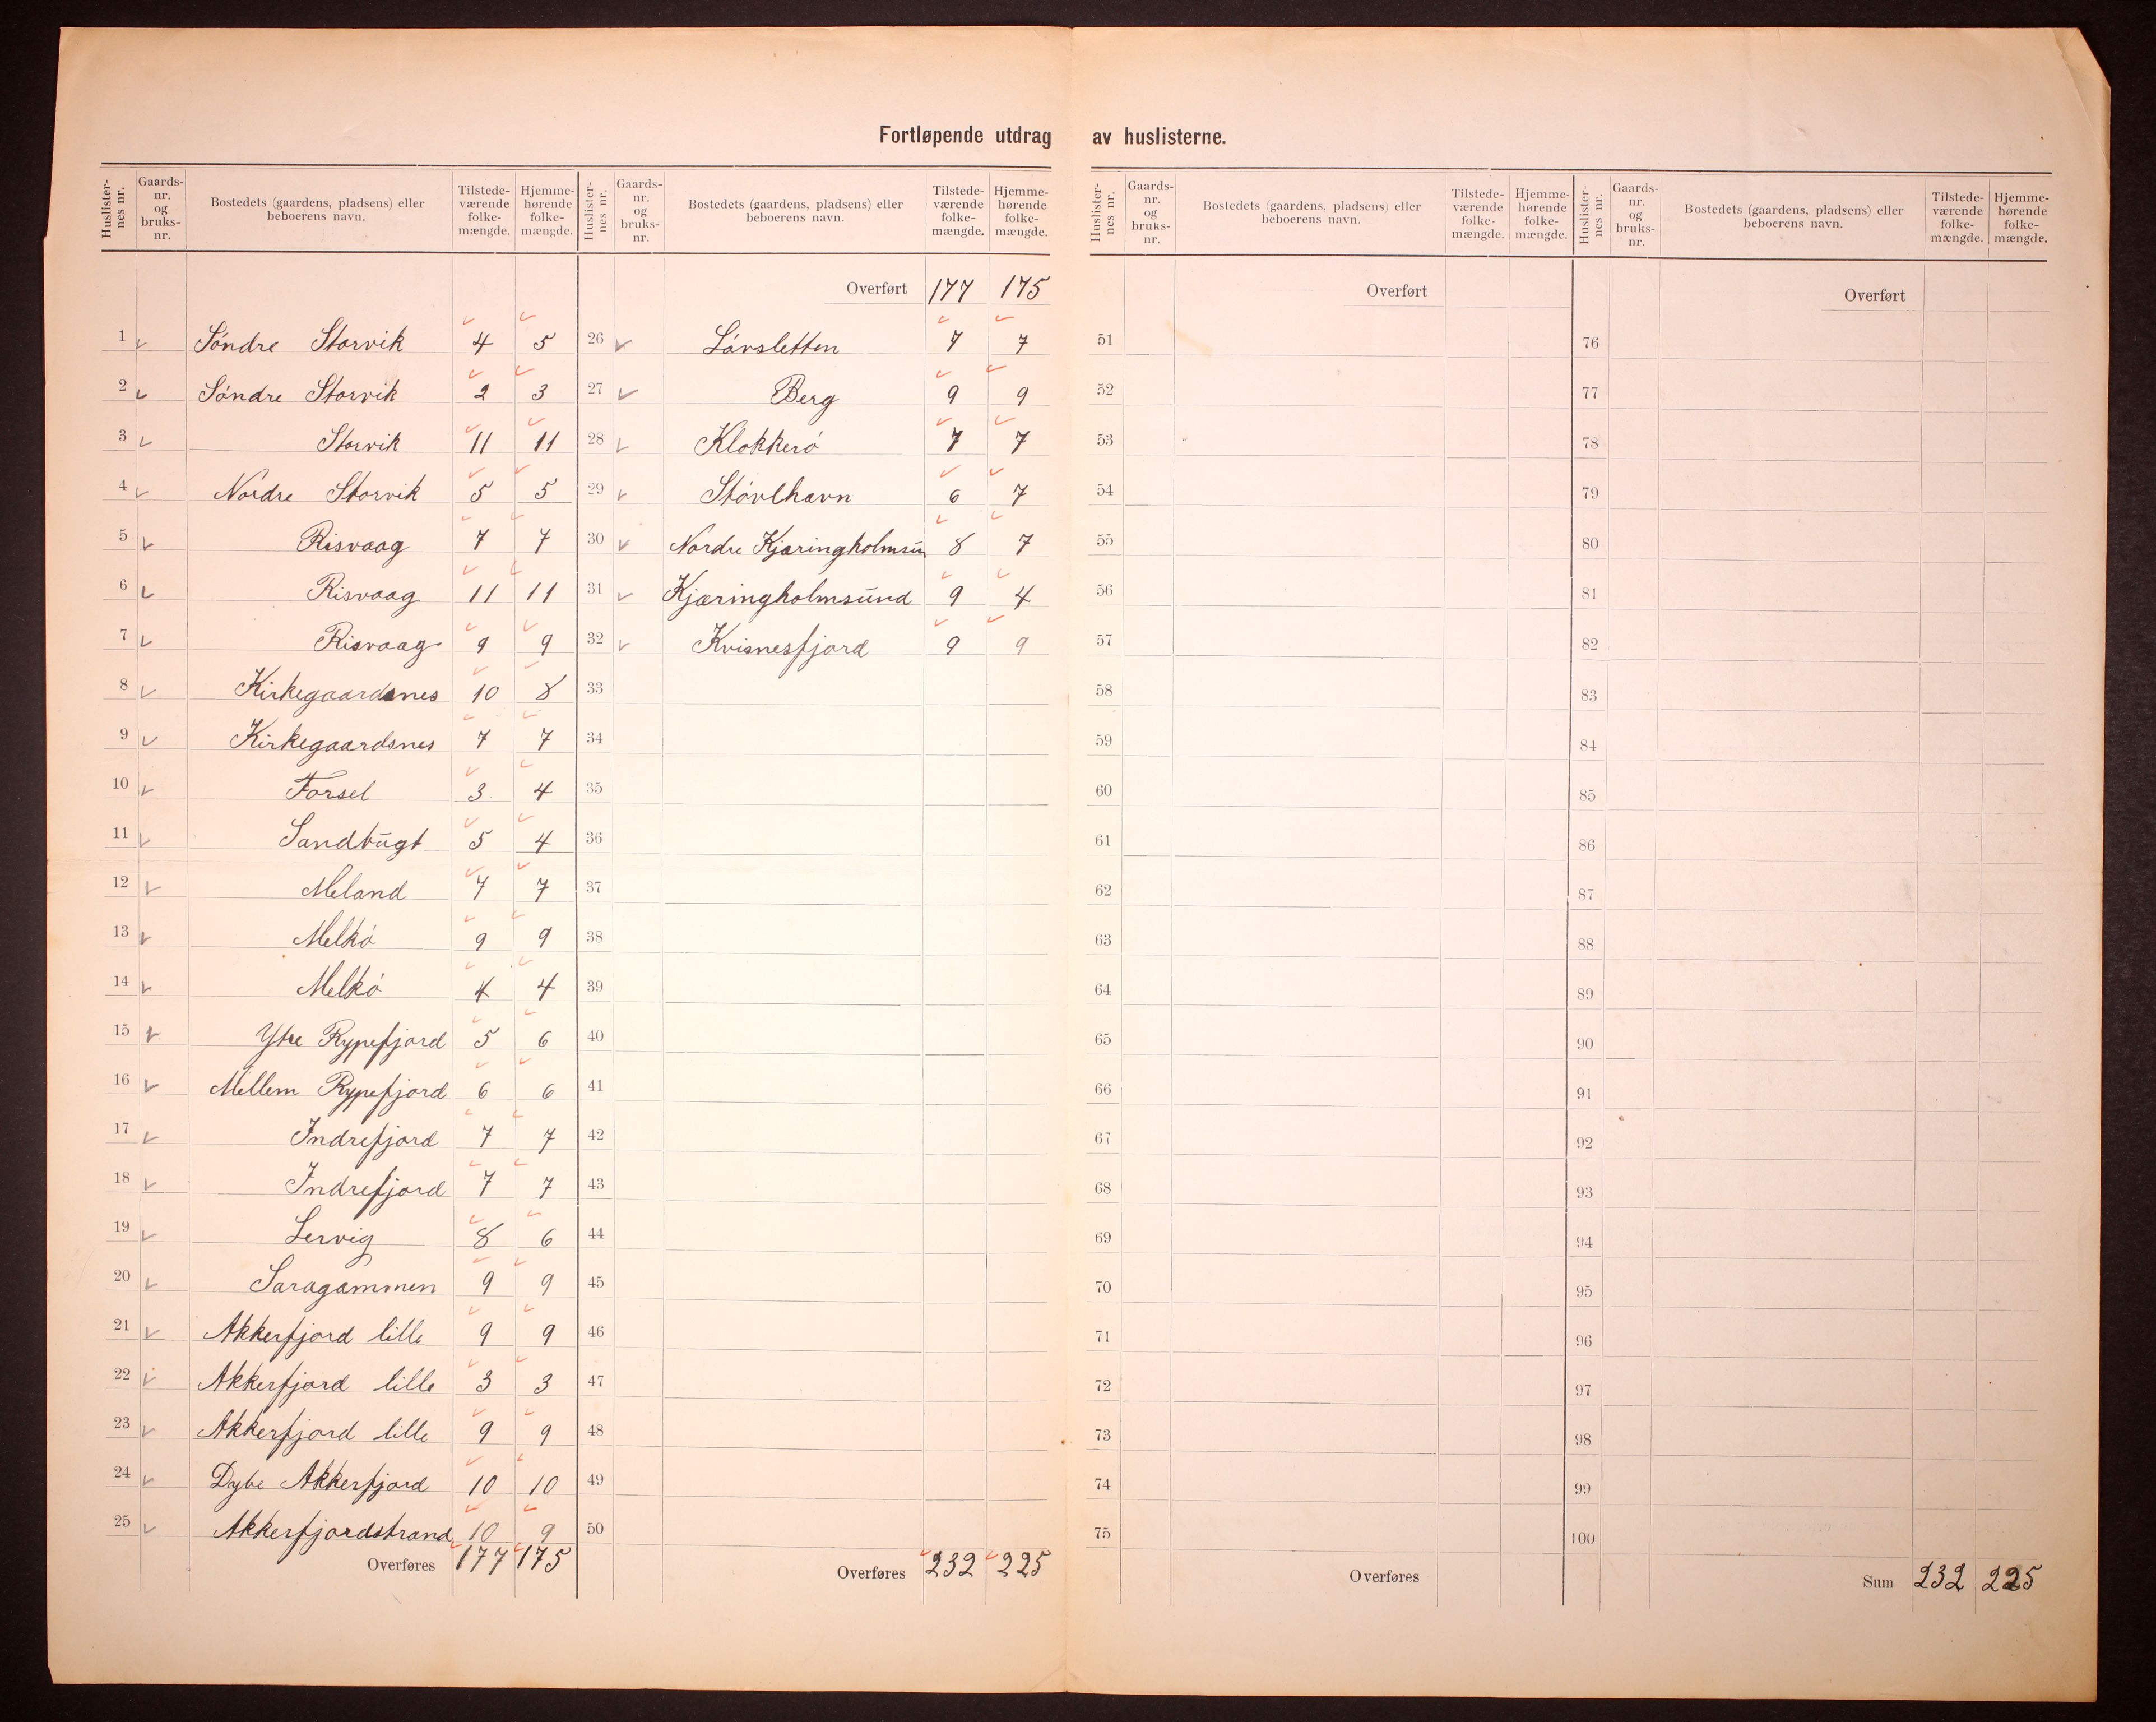 Fortløpende utdrag av huslisterne.
Huslister-nes nr. Gaards-nr. og bruks-nr. Bostedets (gaardens, pladsens) eller beboerens navn. Tilstede-værende folke-mængde. Hjemme-hørende folke-mængde.
1 Söndre Storvik 4 5
2 Söndre Storvik 2 3
3 Storvik 11 11
4 Nordre Storvik 5 5
5 Risvaag 7 7
6 Risvaag 11 11
7 Risvaag 9 9
8 Kirkegaardsnes 10 8
9 Kirkegaardsnes 7 7
10 Forsel 3 4
11 Sandbugt 5 4
12 Meland 7 7
13 Melkö 9 9
14 Melkö 4 4
15 Ytre Rypefjord 5 6
16 Mellem Rypefjord 6 6
17 Indrefjord 7 7
18 Indrefjord 7 7
19 Lervig 8 6
20 Saragammen 9 9
21 Akkerfjord lille 9 9
22 Akkerfjord lille 3 3
23 Akkerfjord lille 9 9
24 Dybe Akkerfjord 10 10
25 Akkerfjordstrand 10 9
Overføres 177 175
Huslister-nes nr. Gaards-nr. og bruks-nr. Bostedets (gaardens, pladsens) eller beboerens navn. Tilstede-værende folke-mængde. Hjemme-hørende folke-mængde.
Overført 177 175
26 Lörsletten 7 7
27 Berg 9 9
28 Klokkerö 7 7
29 Stövlhavn 6 7
30 Nordre Kjæringholmsun 8 7
31 Kjæringholmsund 9 4
32 Kvisnesfjord 9 9
33
34
35
36
37
38
39
40
41
42
43
44
45
46
47
48
49
50
Overføres 232 225
Huslister-nes nr. Gaards-nr. og bruks-nr. Bostedets (gaardens, pladsens) eller beboerens navn. Tilstede-værende folke-mængde. Hjemme-hørende folke-mængde.
Overført
51
52
53
54
55
56
57
58
59
60
61
62
63
64
65
66
67
68
69
70
71
72
73
74
75
Overføres
Huslister-nes nr. Gaards-nr. og bruks-nr. Bostedets (gaardens, pladsens) eller beboerens navn. Tilstede-værende folke-mængde. Hjemme-hørende folke-mængde.
Overført
76
77
78
79
80
81
82
83
84
85
86
87
88
89
90
91
92
93
94
95
96
97
98
99
100
Sum 232 225